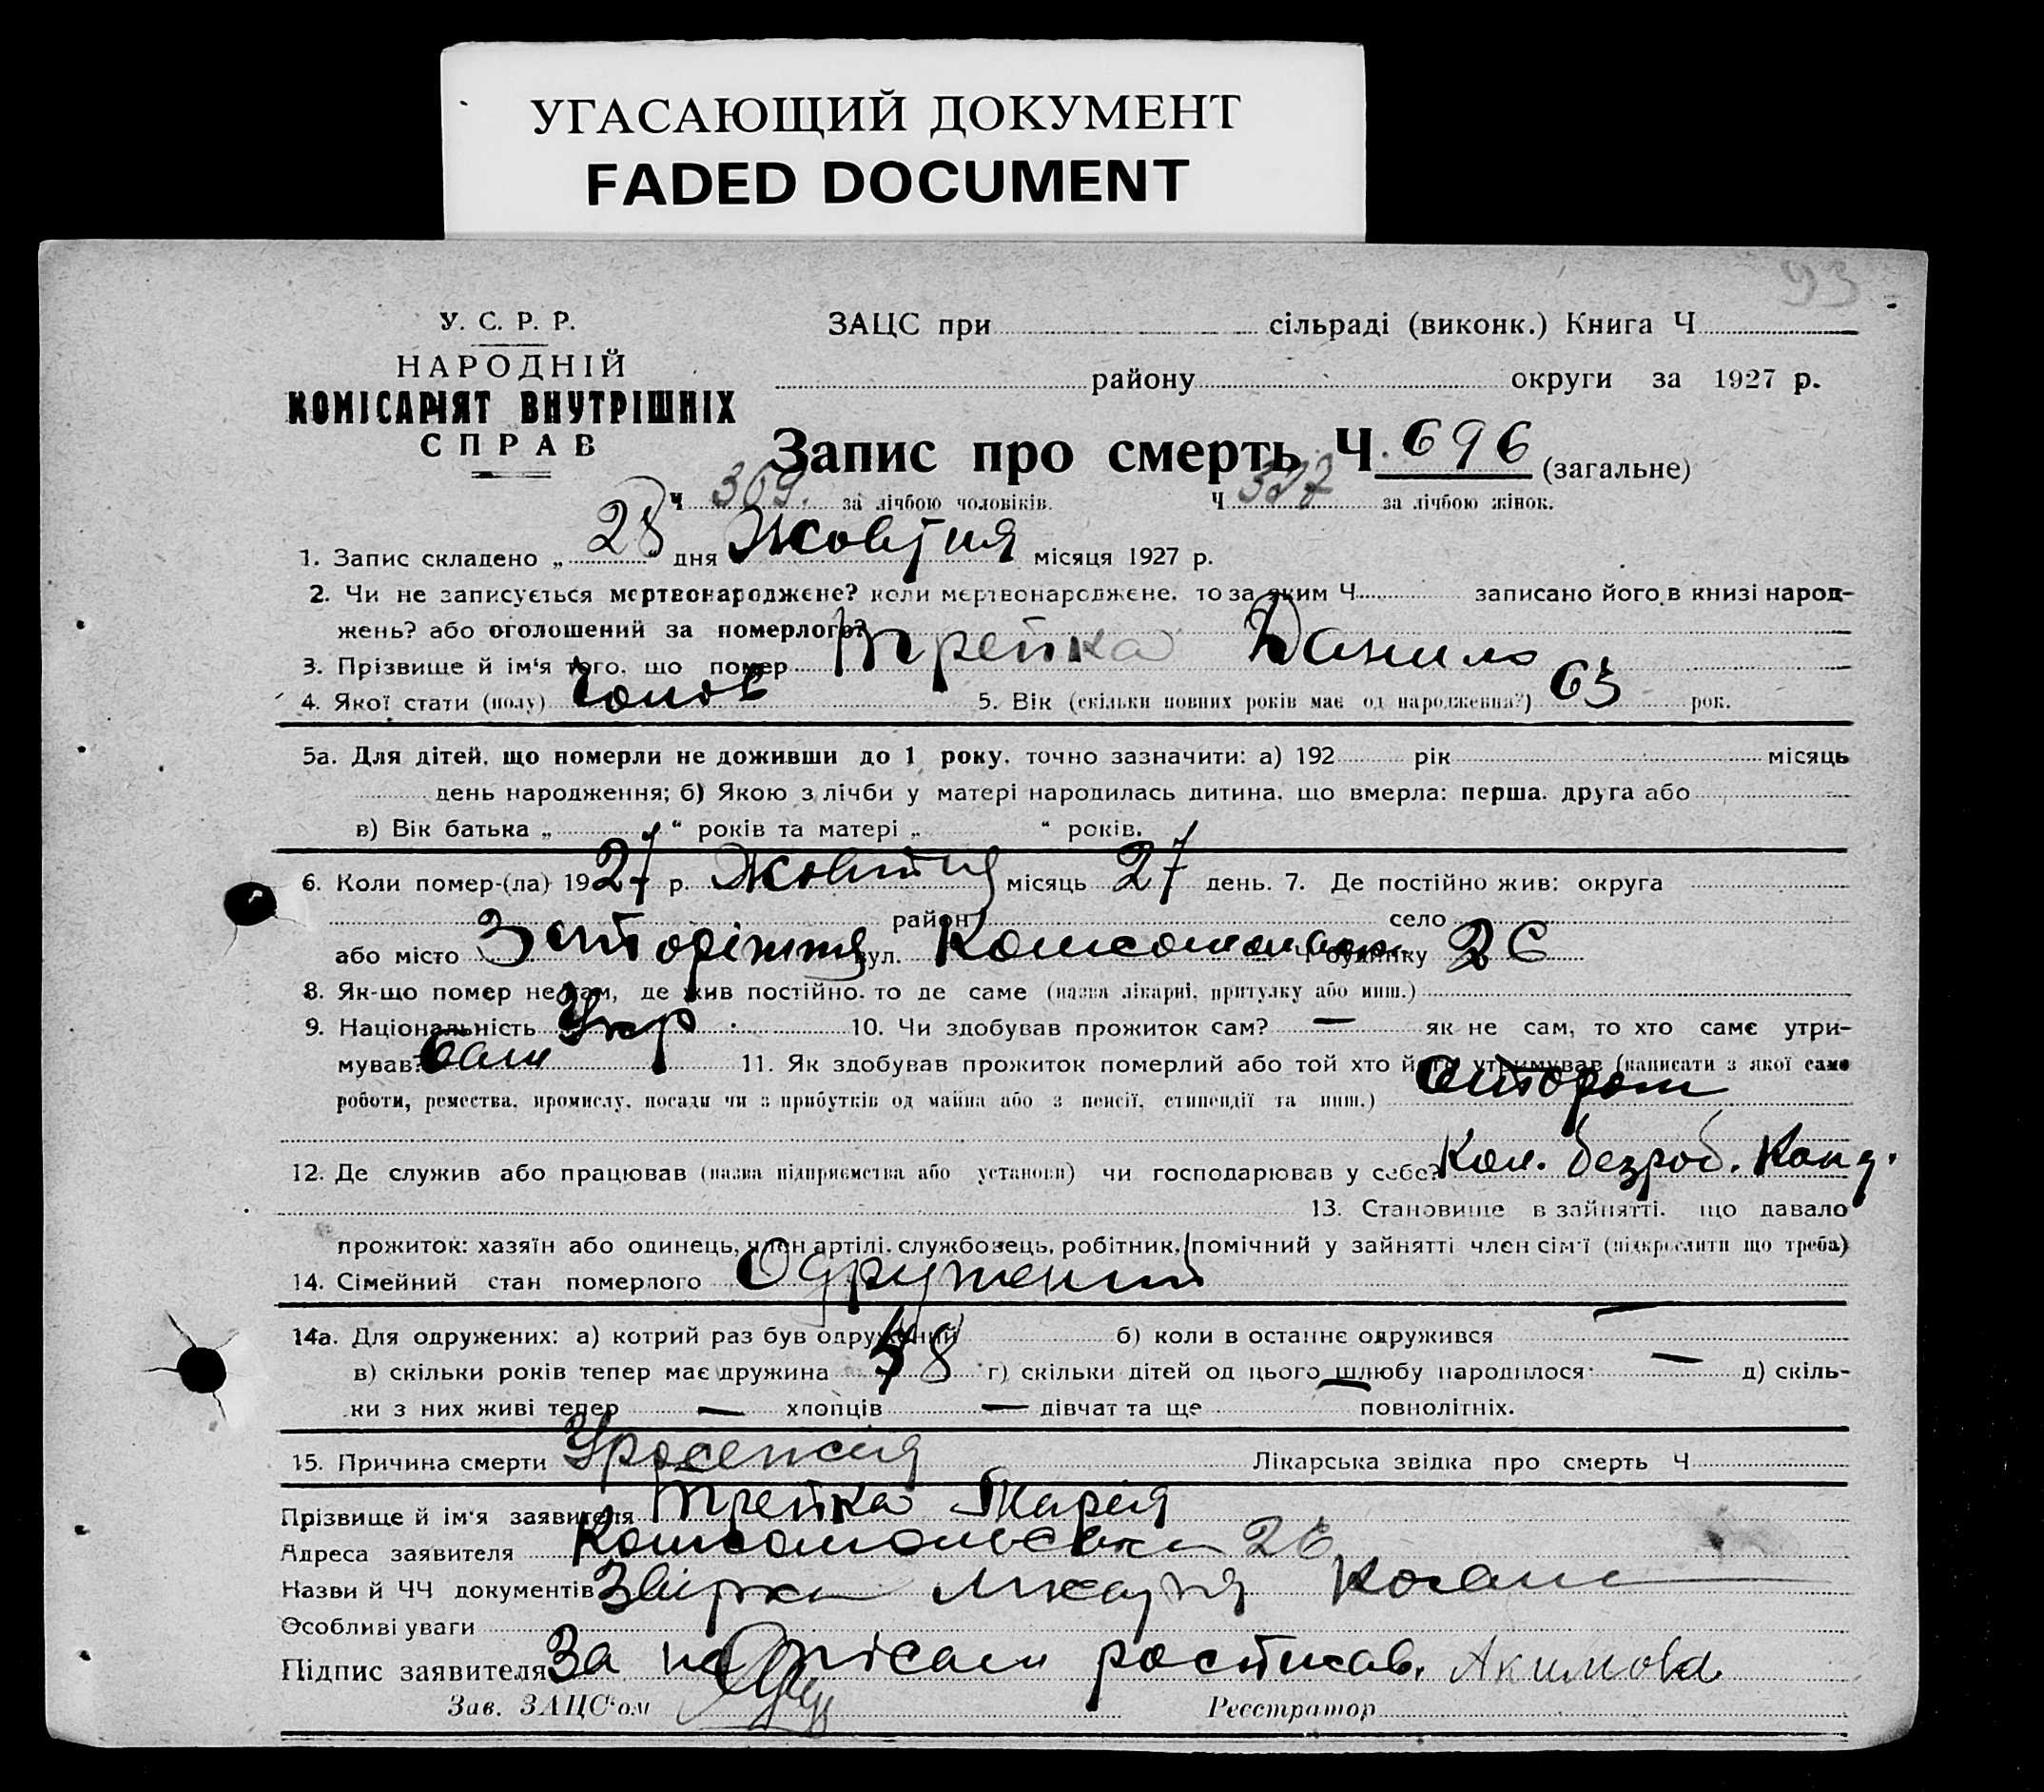 УГАСАЮЩИЙ ДОКУМЕНТ
FADED DOCUMENT
93
У. С. Р. Р.
НАРОДНІЙ
КОМІСАРІЯТ ВНУТРІШНІХ
СПРАВ
ЗАЦС при сільраді (виконк.) Книга Ч
району округи за 1927 р.
Запис про смерть Ч. 696 (загальне)
Ч 369. за лічбою чоловіків. Ч 327 за лічбою жінок.
1. Запис складено „ 28 " дня Жовтня місяця 1927 р.
2. Чи не записується мертвонароджене? коли мертвонароджене, то за яким Ч. записано його в книзі народ-
жень? або оголошений за померлого?
3. Прізвище й ім'я того, що помер Трепка Данило
4. Якої стати (полу) Чолов 5. Вік (скільки повних років має од народження?) 63 рок.
5а. Для дітей, що померли не доживши до 1 року, точно зазначити: а) 192 рік місяць
день народження; б) Якою з лічби у матері народилась дитина, що вмерла: перша, друга або
в) Вік батька „ " років та матері „ " років.
6. Коли помер-(ла) 1927 р. Жовтня місяць 27 день. 7. Де постійно жив: округа
район село
або місто Запоріжжя вул. Комсомольськ. Ч будинку 26
8. Як-що помер не там, де жив постійно, то де саме (назва лікарні, притулку або инш.)
9. Національність Укр. 10. Чи здобував прожиток сам? — як не сам, то хто саме утри-
мував? Сам 11. Як здобував прожиток померлий або той хто його утримував (написати з якої саме
роботи, ремества, промислу, посади чи з прибутків од майна або з пенсії, стипендії та инш.) сторож
12. Де служив або працював (назва підприємства або установи) чи господарював у себе? Кол. безроб.
13. Становище в зайнятті, що давало
прожиток: хазяїн або одинець, член артілі, службовець, робітник, помічний у зайнятті член сім'ї (підкреслити що треба)
14. Сімейний стан померлого Одружений
14а. Для одружених: а) котрий раз був одружений б) коли в останнє одружився —
в) скільки років тепер має дружина 58 г) скільки дітей од цього шлюбу народилося — д) скіль-
ки з них живі тепер — хлопців — дівчат та ще — повнолітніх.
15. Причина смерти Лікарська звідка про смерть Ч
Прізвище й ім'я заявителя Трепка Марія
Адреса заявителя Комсомольська 26
Назви й ЧЧ документів Звірка лікаря Коган
Особливі уваги
Підпис заявителя За непісьм росписав. Акимова
Зав. ЗАЦС'ом Реєстратор